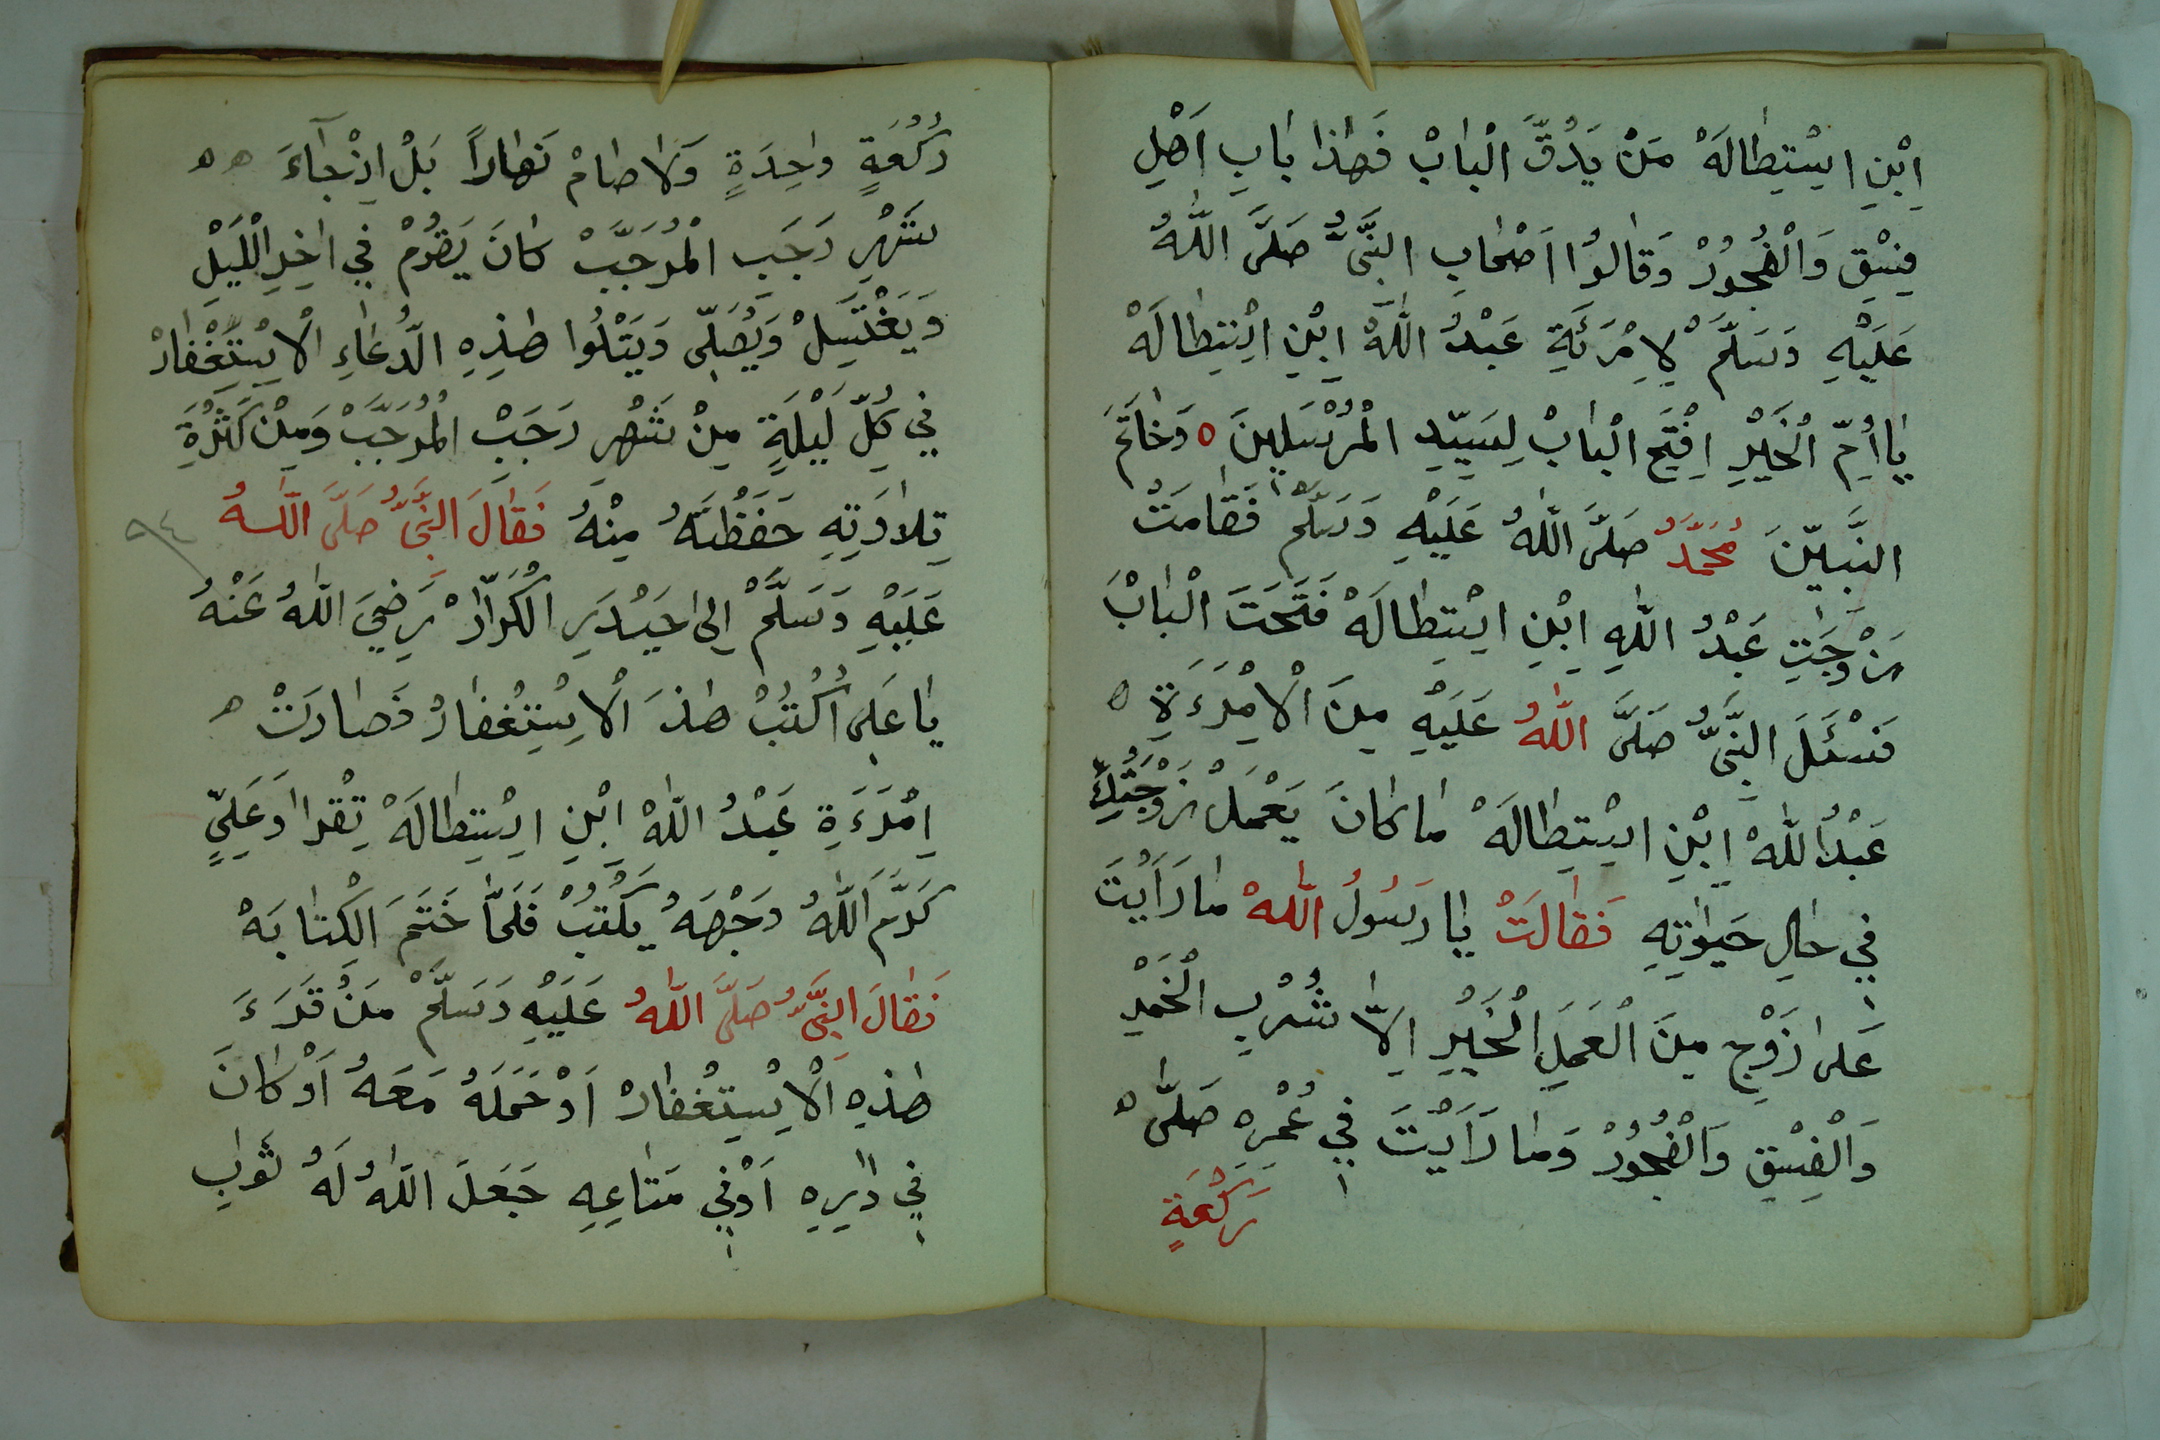 اِبْنِ اِسْتِطَالَهْ مَنْ يَدُقُّ الْبَابْ فَهٰذَا بَابِ اَهْلِ
فِسْقِ وَالْفُجُورْ وَقَالُوا اَصْحَابِ النَّبِىُّ صَلَّى اللّٰهُ
عَلَيْهِ وَسَلَّمَ لِاِمْرَئَةِ عَبْدُ اللّٰهْ اِبْنِ اِسْتِطَالَهْ
يَا اُمِّ الْخَيْرِ اِفْتَحِ الْبَابْ لِسَيِّدِ الْمُرْسَلِينَ ٥ وَخَاتَمَ
النَّبِيّنَ مُحَمَّدُ صَلَّى اللّٰهُ عَلَيْهِ وَسَلَّمْ فَقَامَتْ
زَوْجَتِ عَبْدُ اللّٰهِ اِبْنِ اِسْتِطَالَهْ فَتَحَتَ الْبَابْ
فَسْئَلَ النَّبِىُّ صَلَّى اللّٰهُ عَلَيْهِ مِنَ الْاِمْرَءَةِ ٥
عَبْدُ اللّٰهْ اِبْنِ اِسْتِطَالَهْ مَا كَانَ يَعْمَلْ زَوْجَتُكِ
فِي حَالِ حَيٰوتِهِ فَقَالَتْ يَا رَسُولُ اللّٰهْ مَا رَاَيْتَ
عَلٰى زَوْجِ مِنَ الْعَمَلِ الْخَيْرِ اِلَّا شُرْبِ الْخَمْرِ
وَالْفِسْقِ وَالْفُجُورْ وَمَا رَاَيْتَ فِي عُمْرِهِ صَلَّى ه
رَكْعَةٍ
رَكْعَةٍ وَاحِدَةٍ وَلَا صَامْ نَهَاراً بَلْ اِذْ جَآءَ ه ه
شَهْرِ رَجَبِ الْمُرَجَّبْ كَانَ يَقُومْ فِي اٰخِرِ اللَّيْلِ
وَيَغْتَسِلْ وَيُصَلِّى وَيَتْلُوا هٰذِهِ الدُّعَاءِ الْاِسْتِغْفَارْ
فِي كُلِّ لَيْلَةٍ مِنْ شَهْرِ رَجَبْ الْمُرَجَّبْ وَمِنْ كَثْرَةِ
تِلَاوَتِهِ حَفَظْتَهُ مِنْهُ فَقَالَ النَّبِىُّ صَلَّى اللّٰهُ
عَلَيْهِ وَسَلَّمْ اِلٰى حَيْدَرِ الْكَرَّارْ رَضِيَ اللّٰهُ عَنْهُ
يَا عَلِى اُكْتُبْ هٰذَ الْاِسْتِغْفَارْ فَصَارَتْ ه
اِمْرَءَةِ عَبْدُ اللّٰهْ اِبْنِ اِسْتِطَالَهْ تِقْرَا وَعَلِيٍّ
كَرَّمَ اللّٰهُ وَجْهَهُ يَكْتُبْ فَلَمَّا خَتَمَ الْكِتَابَهْ
فَقَالَ النَّبِىُّ صَلَّى اللّٰهُ عَلَيْهِ وَسَلَّمْ مَنْ قَرَءَ
هٰذِهِ الْاِسْتِغْفَارْ اَوْ حَمَلَهُ مَعَهُ اَوْ كَانَ
فِي دَايِرِهِ اَوْ فِي مَتَاعِهِ جَعَلَ اللّٰهُ لَهُ ثَوَابِ